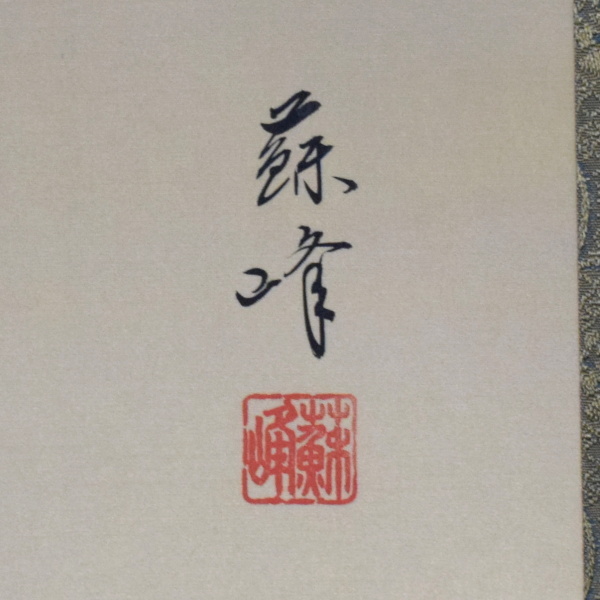 蘇
峰
蘇峰